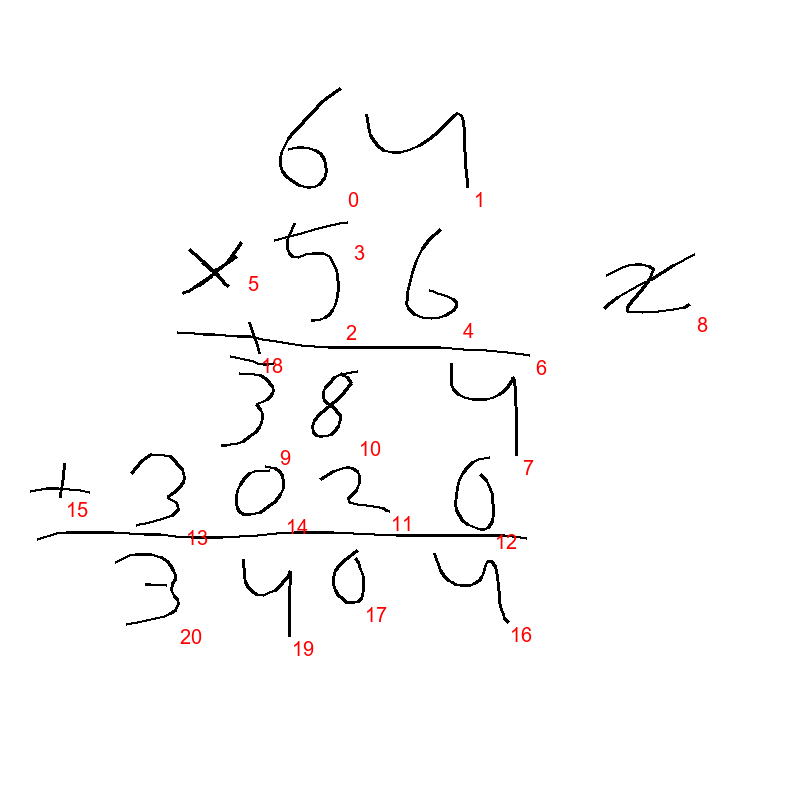 64
0 1
3
× 56 2
5
2 4 8
18 6
384
9 10 7
+ 3020
15 13 14 11 12
3404
20 19 17 16